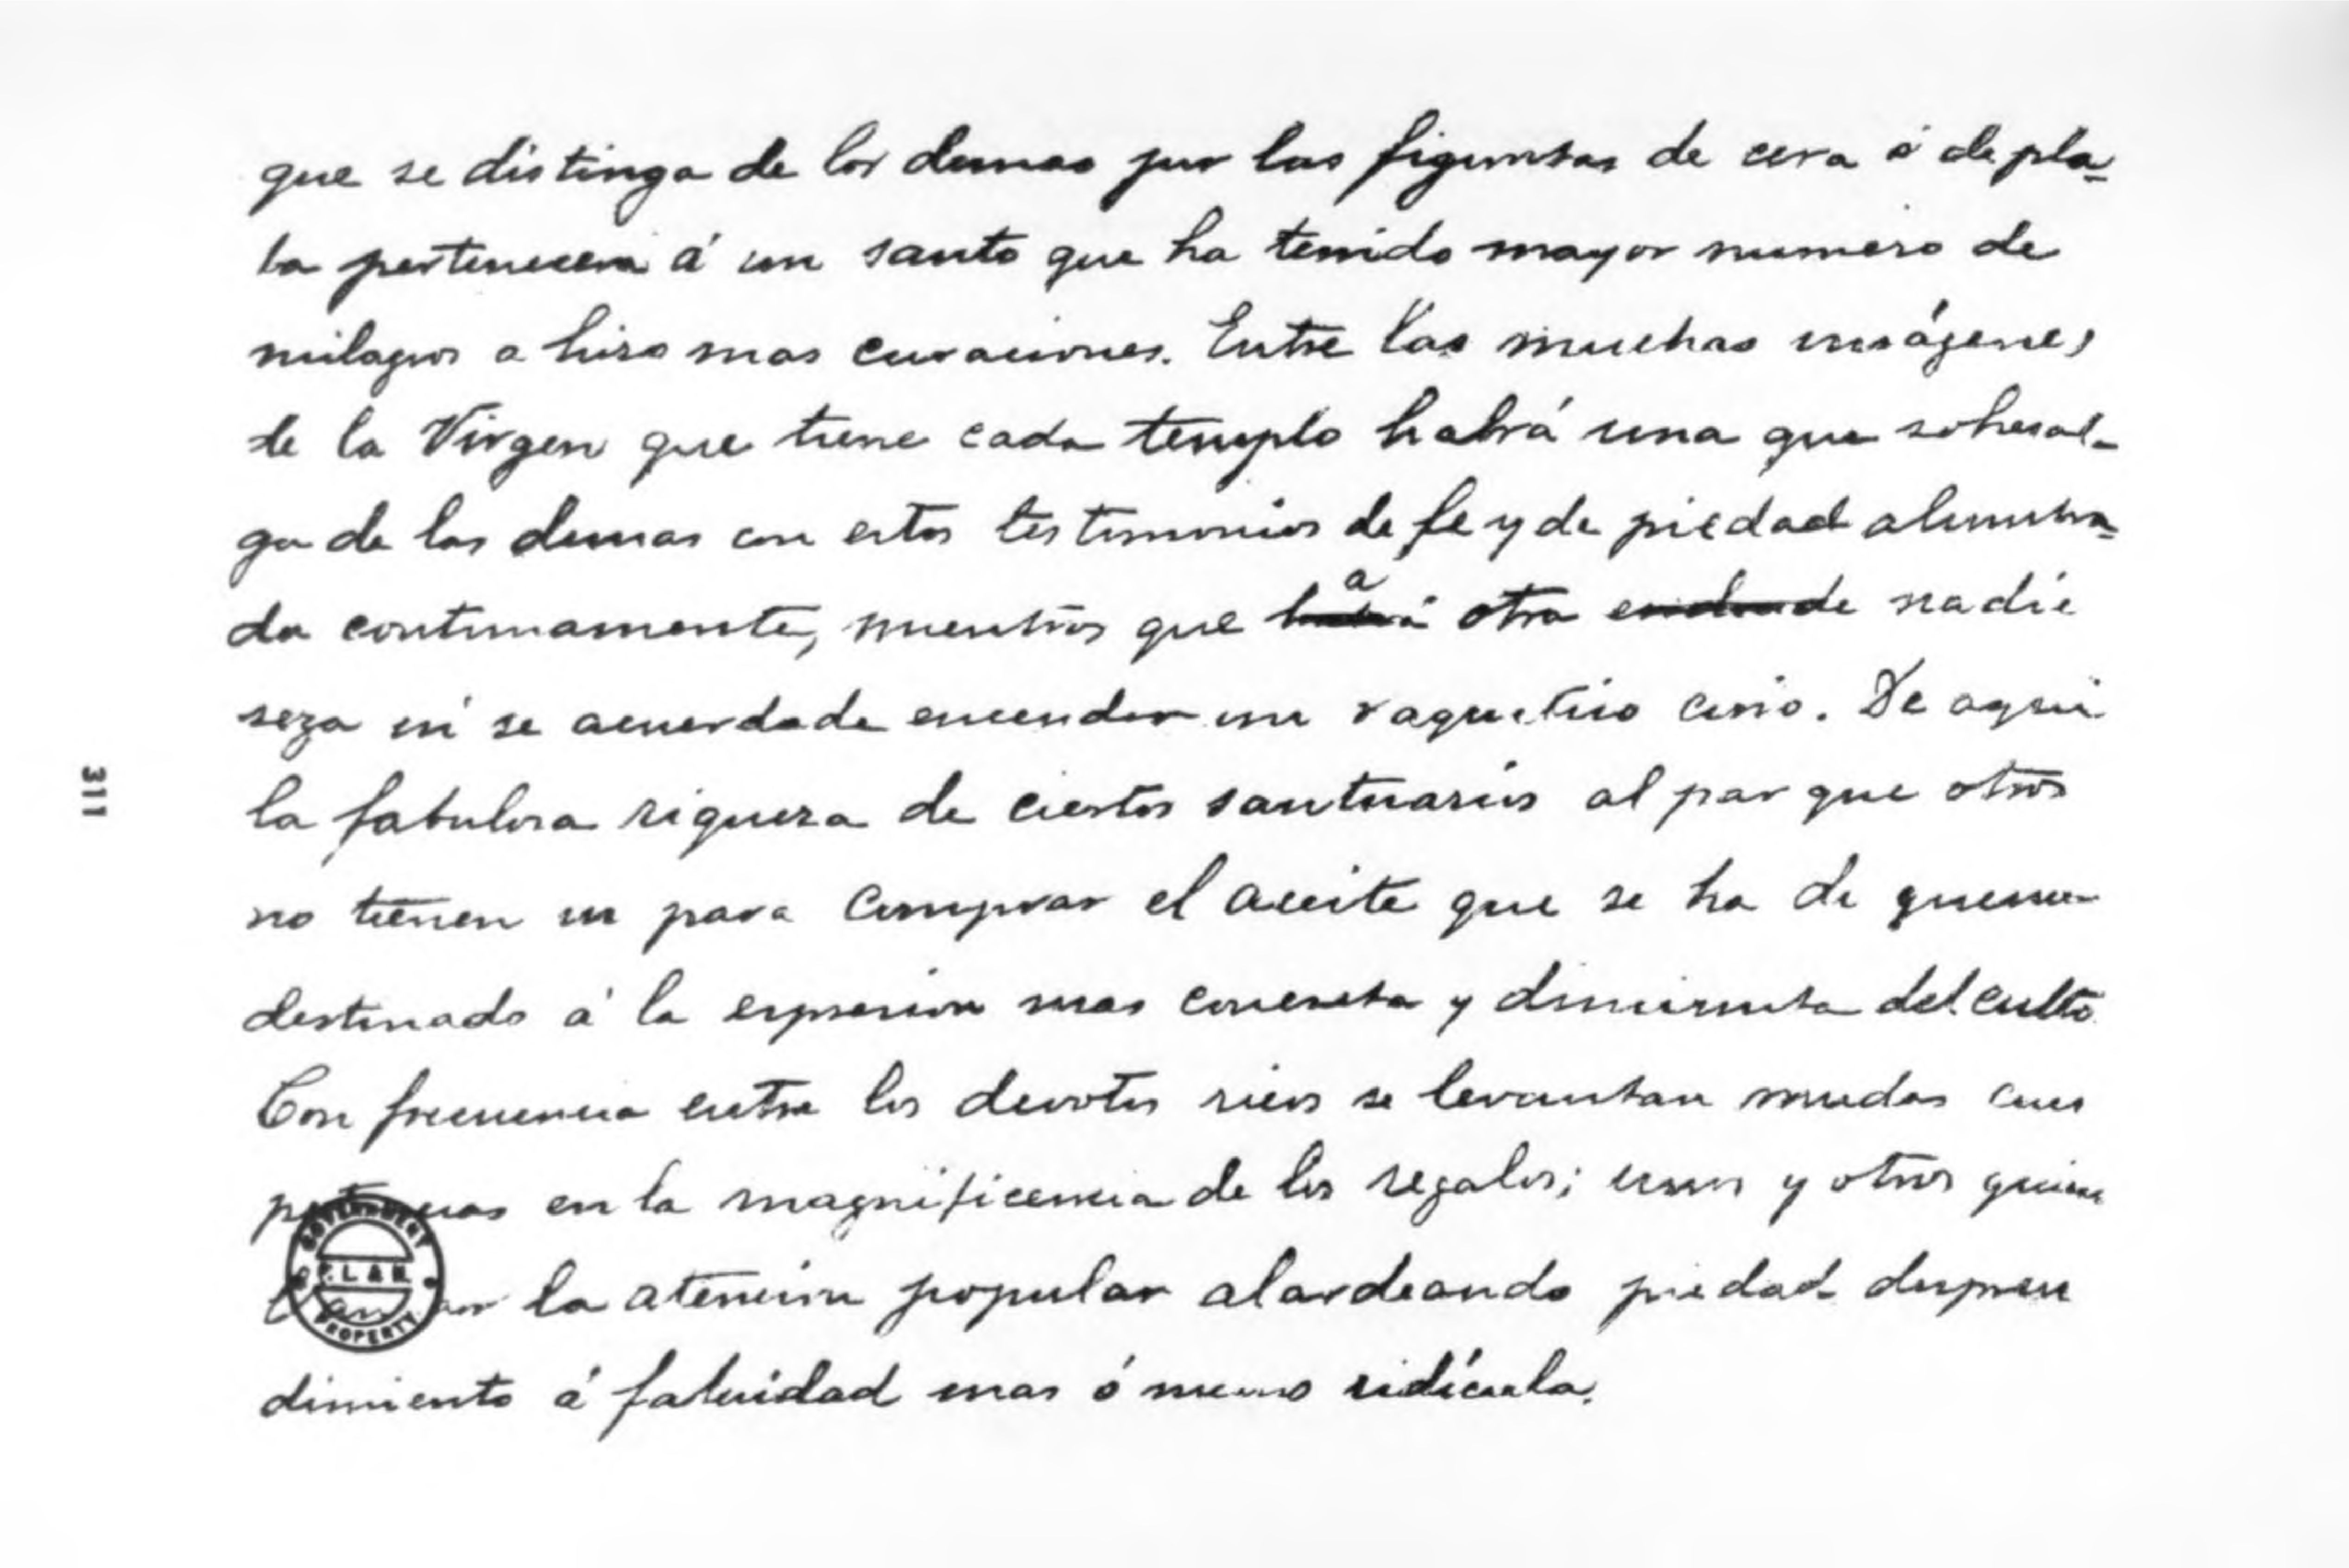 que se distinga de los demas por las figuritas de cera ó de pla-
ta pertenecera á un santo que ha tenido mayor numero de
milagros o hizo mas curaciones. Entre las muchas imágenes
de la Virgen que tiene cada templo habrá una que sobresal-
ga de las demas con estos testimonios de fe y de piedad alumbra-
da continuamente, mientras que a otra nadie
reza ni se acuerda de encender un raquitico cirio. De aqui
la fabulosa riqueza de ciertos santuarios al par que otros
no tienen ni para comprar el aceite que se ha de quemar
destinado á la expresion mas concreta y diminuta del culto
Con frecuencia entre los devotos ricos se levantan mudas
en la magnificencia de los regalos; unos y otros quieren
la atencion popular alardeando piedad despren
dimiento á fatuidad mas ó menos ridícula.
311
GOVERNMENT
PROPERTY